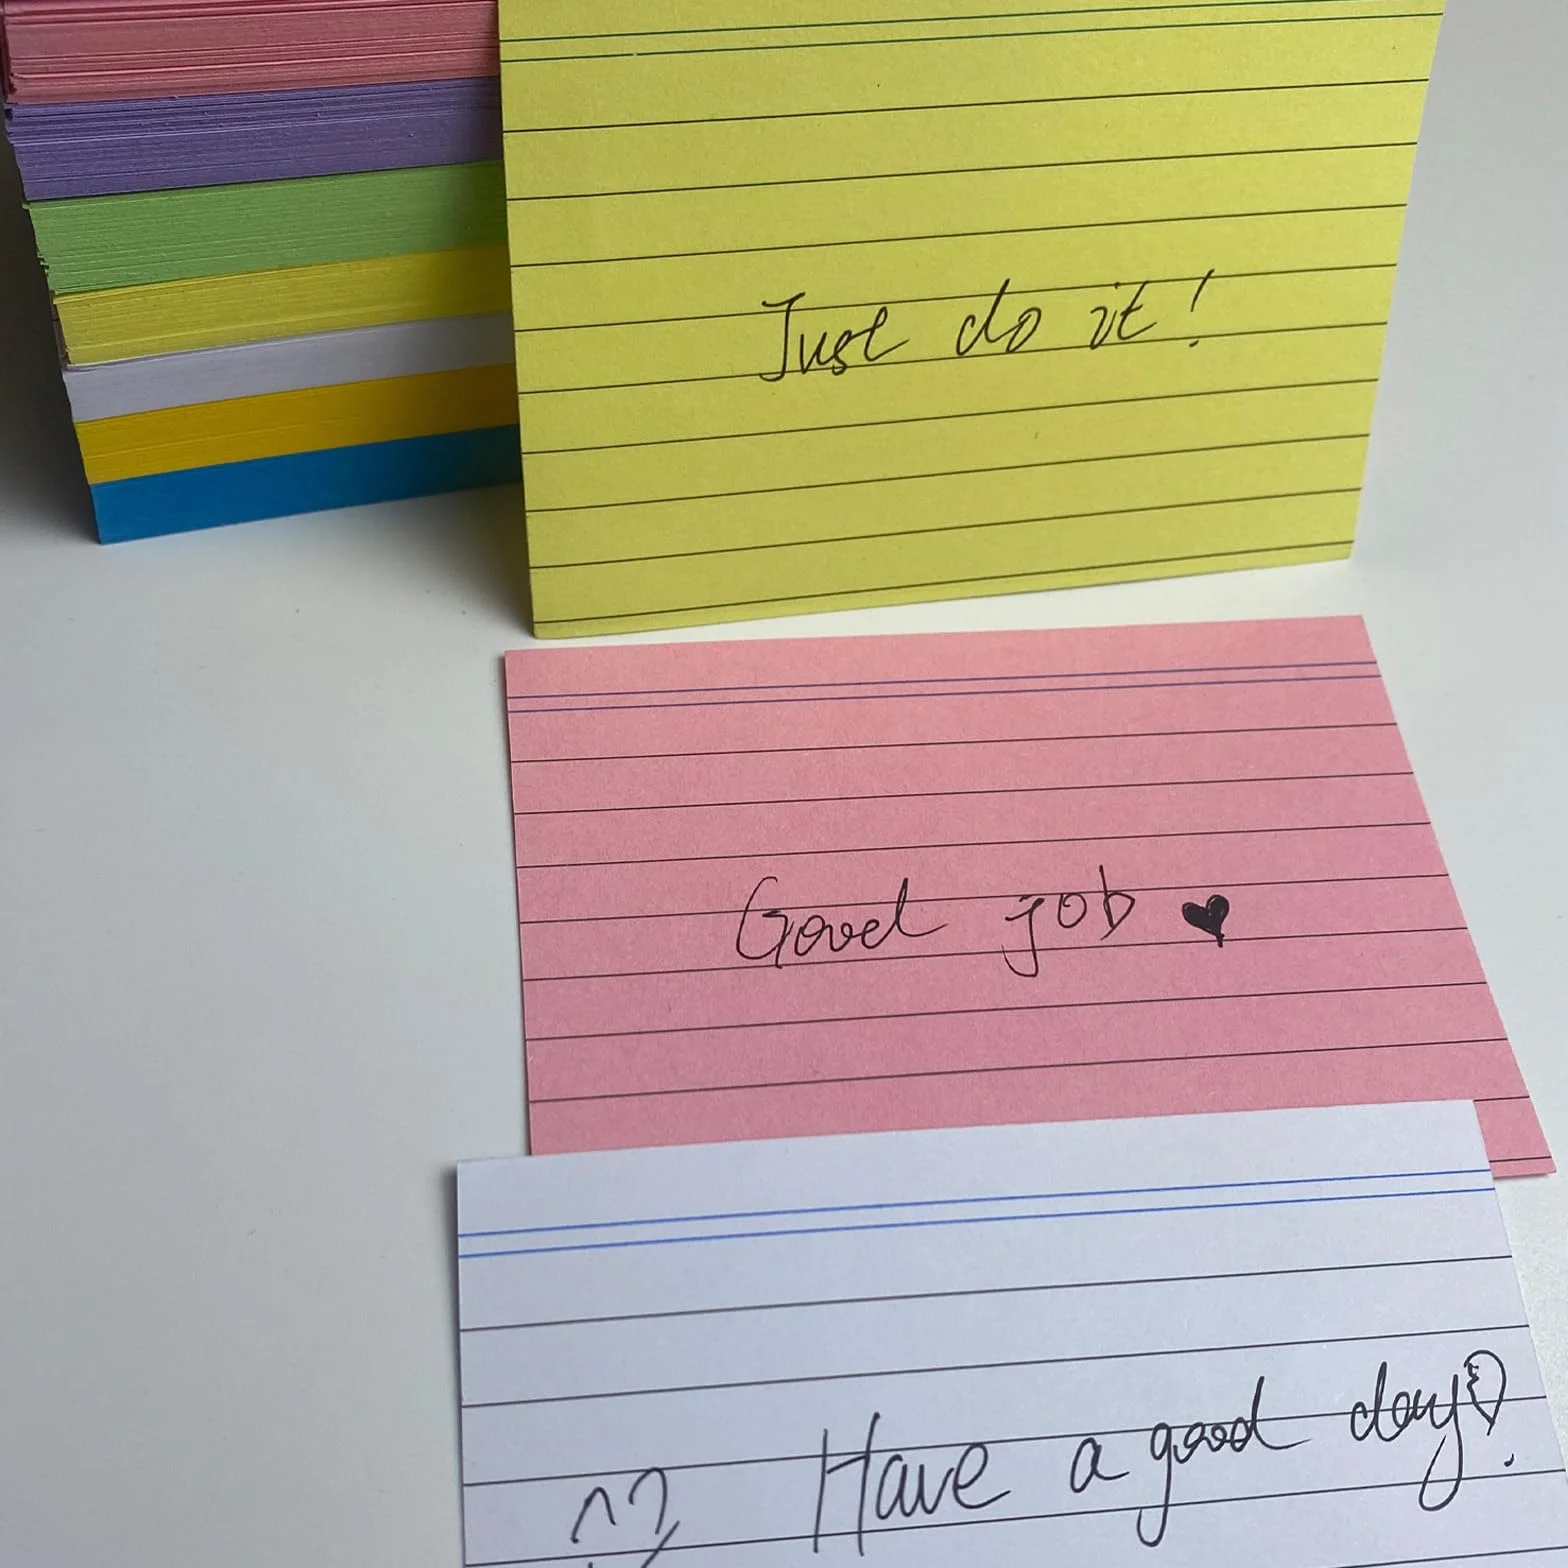 Just do it!
Good job ♥
Have a good day!